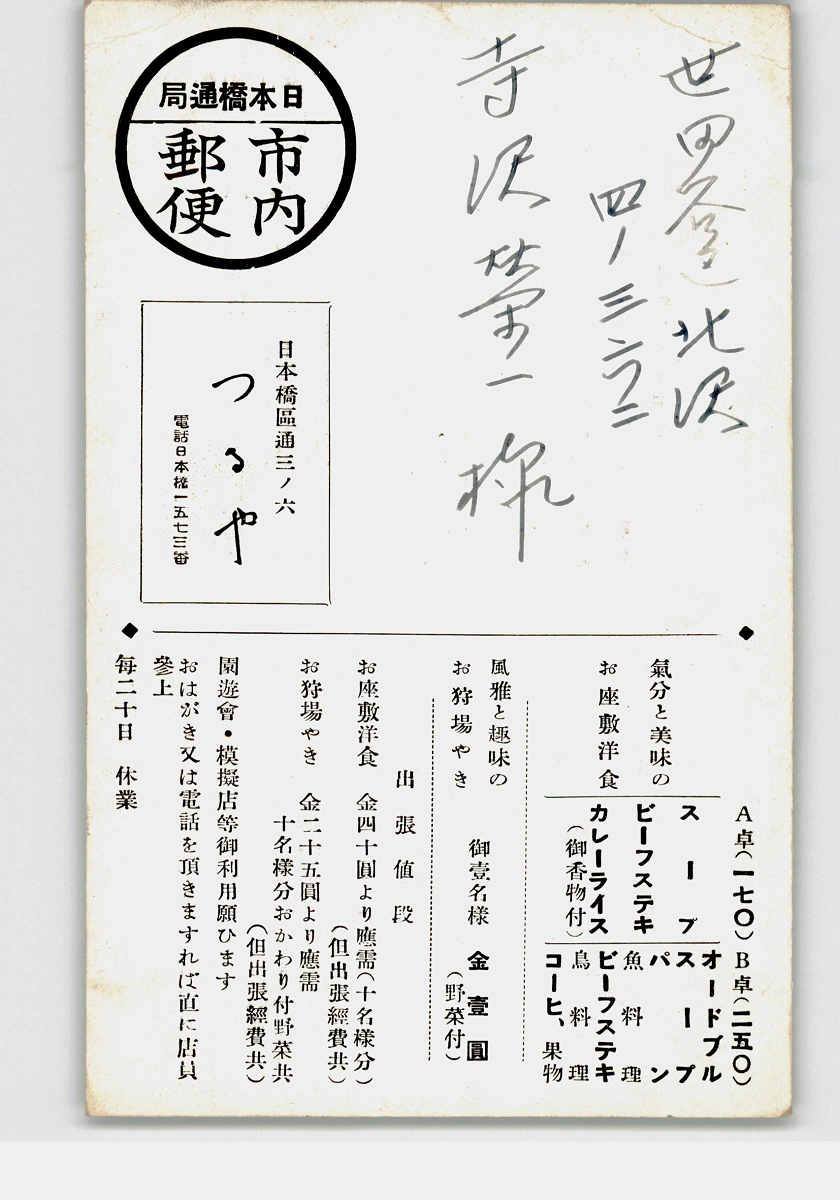 世田谷區北沢
四ノ三六二
寺沢榮一様
日本橋通局
市内
郵便
日本橋區通三ノ六
つるや
電話日本橋一五七三番
A卓(一七〇)
スープ
ビーフステキ
カレーライス
(御香物付)
B卓(二五〇)
オードブル
スープ
パン
魚料理
ビーフステキ
鳥料理
コーヒ、果物
氣分と美味の
お座敷洋食
風雅と趣味の
お狩場やき
御壹名様 金壹圓
(野菜付)
出張値段
お座敷洋食 金四十圓より應需(十名様分)
(但出張經費共)
お狩場やき 金二十五圓より應需
十名様分おかわり付野菜共
(但出張經費共)
園遊會・模擬店等御利用願ひます
おはがき又は電話を頂きますれば直に店員
參上
毎二十日 休業